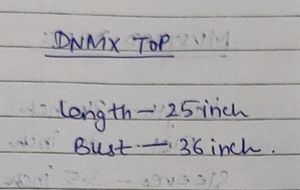 DNMX TOP
Length - 25 inch
Bust - 36 inch.